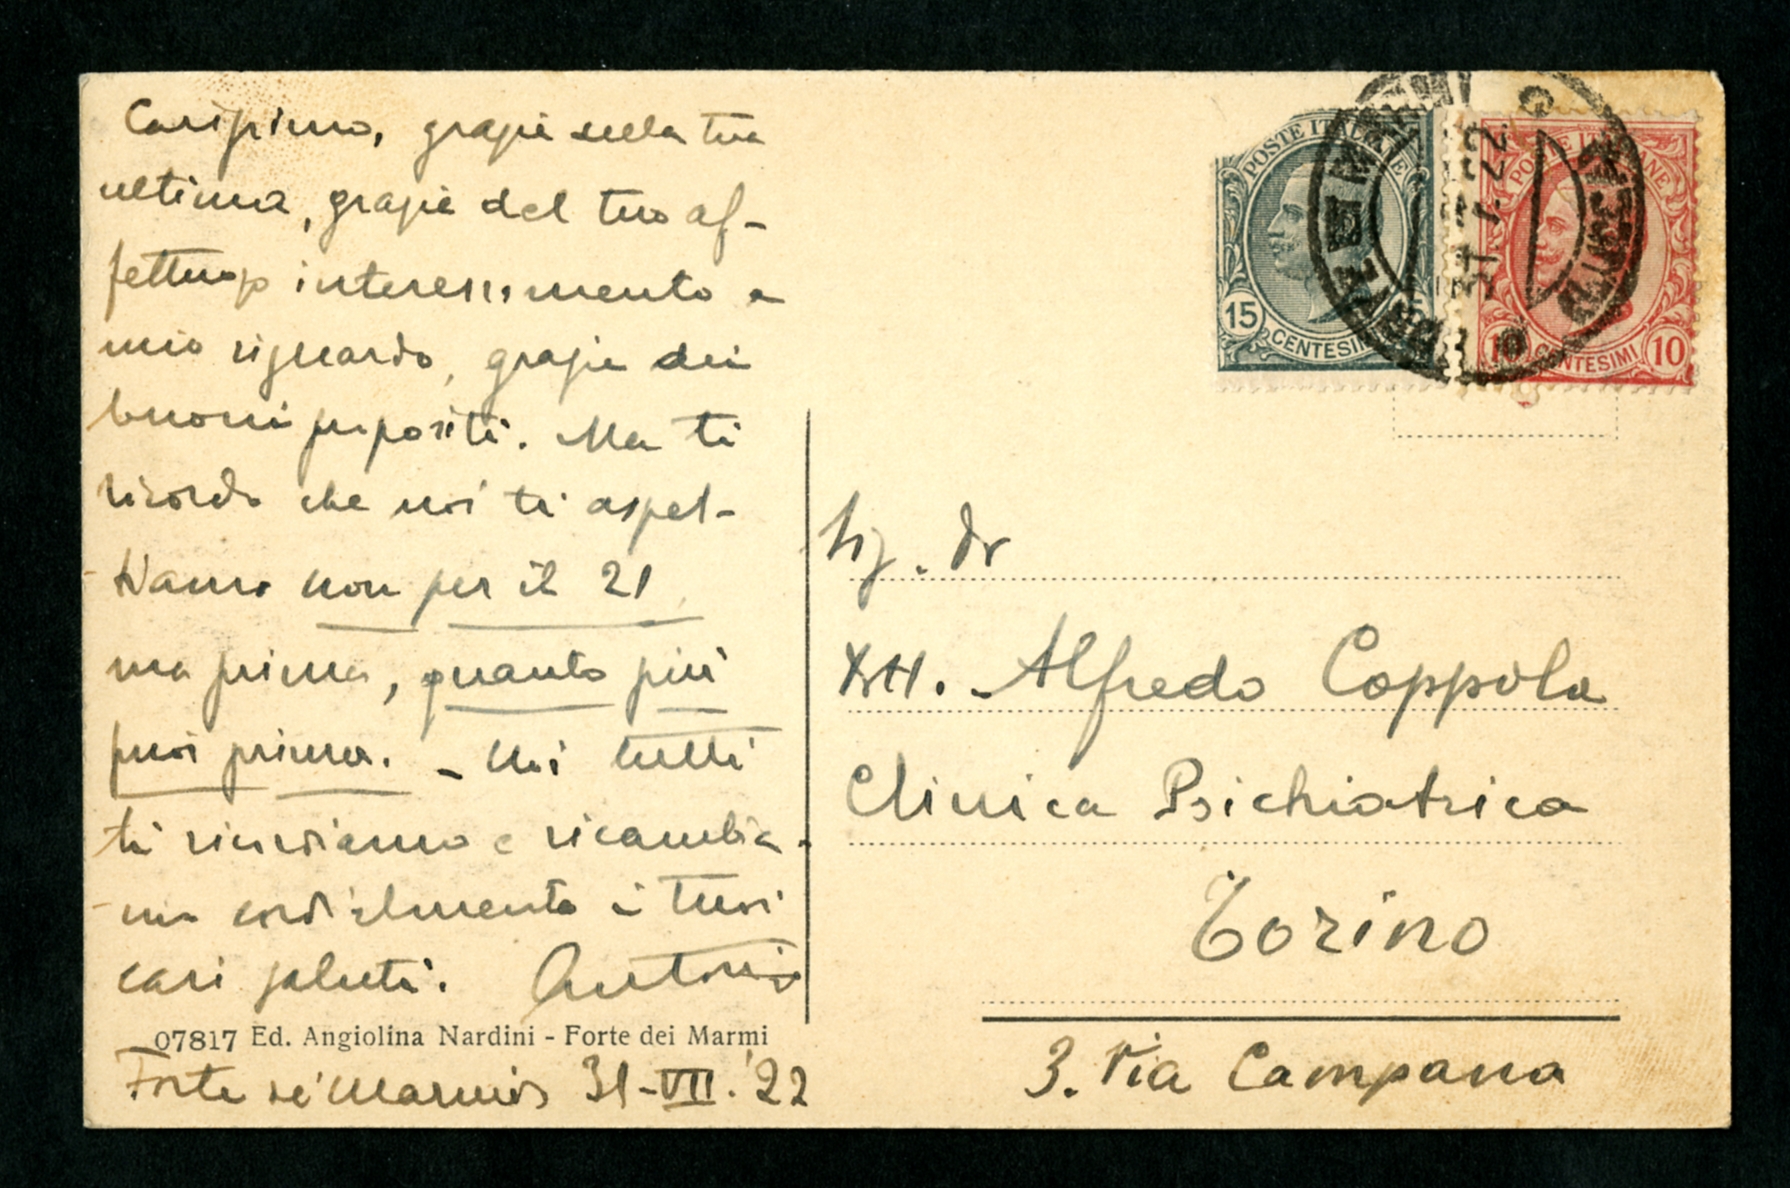 Carissimo, grazie della tua
ultima, grazie del tuo af-
fettuoso interessamento a
mio riguardo, grazie dei
buoni propositi. Ma ti
ricordo che noi ti aspet-
tiamo non per il 21
ma prima, quanto più
puoi prima. - Noi tutti
ti ricordiamo e ricambia-
mo cordialmente i tuoi
cari saluti. Antonio
07817 Ed. Angiolina Nardini - Forte dei Marmi
Forte dei Marmi 31-VII.'22
POSTE ITALIANE
15
CENTESIMI
POSTE ITALIANE
10 CENTESIMI 10
Sig. Dr
Alfredo Coppola
Clinica Psichiatrica
Torino
3. Via Campana